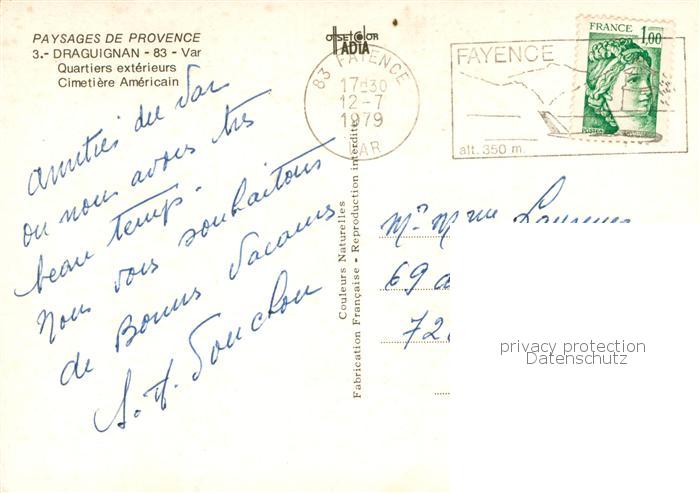 PAYSAGES DE PROVENCE
3.- DRAGUIGNAN - 83 - Var
Quartiers extérieurs
Cimetière Américain
OFFSET COLOR
ADIA
83 FAYENCE
17H30
12-7
1979
VAR
FAYENCE
alt. 350 m.
FRANCE 1,00
POSTES
amitiés du Var
ou nous avons très
beau temps.
Nous vous souhaitons
de Bonnes Vacances
Couleurs Naturelles
Fabrication Française - Reproduction interdite
Mr Mme
69
72
privacy protection
Datenschutz